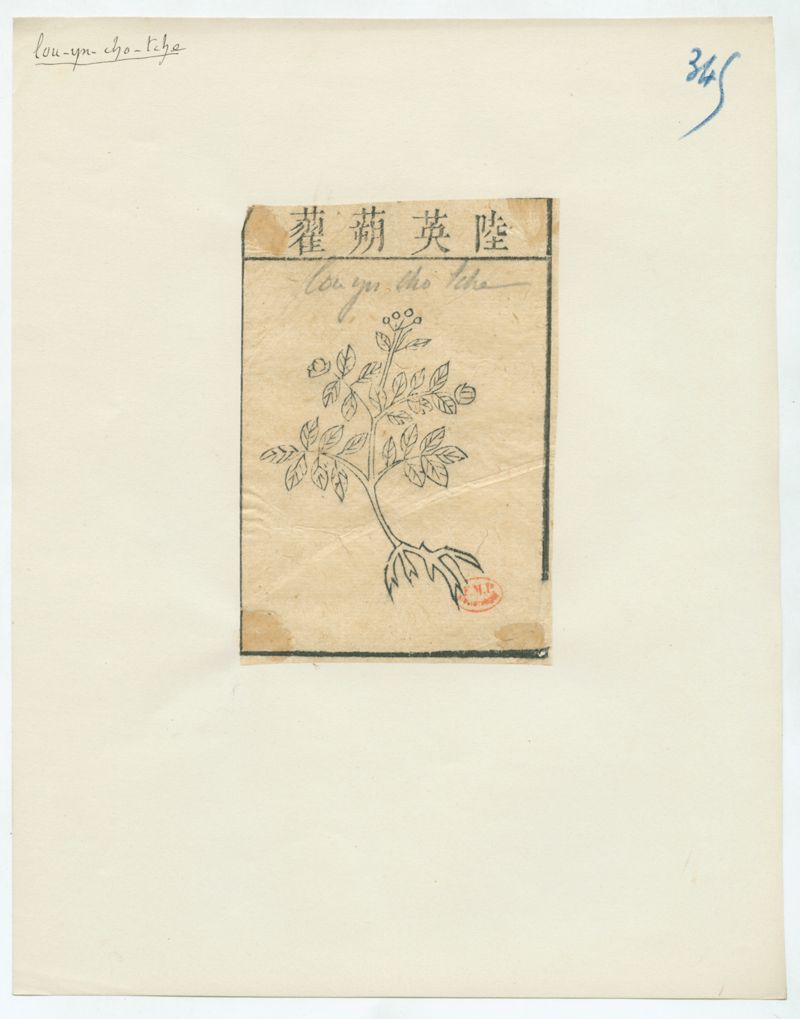 lou-yn-cho-tche
345
陸英蒴藋
lou yn cho tche